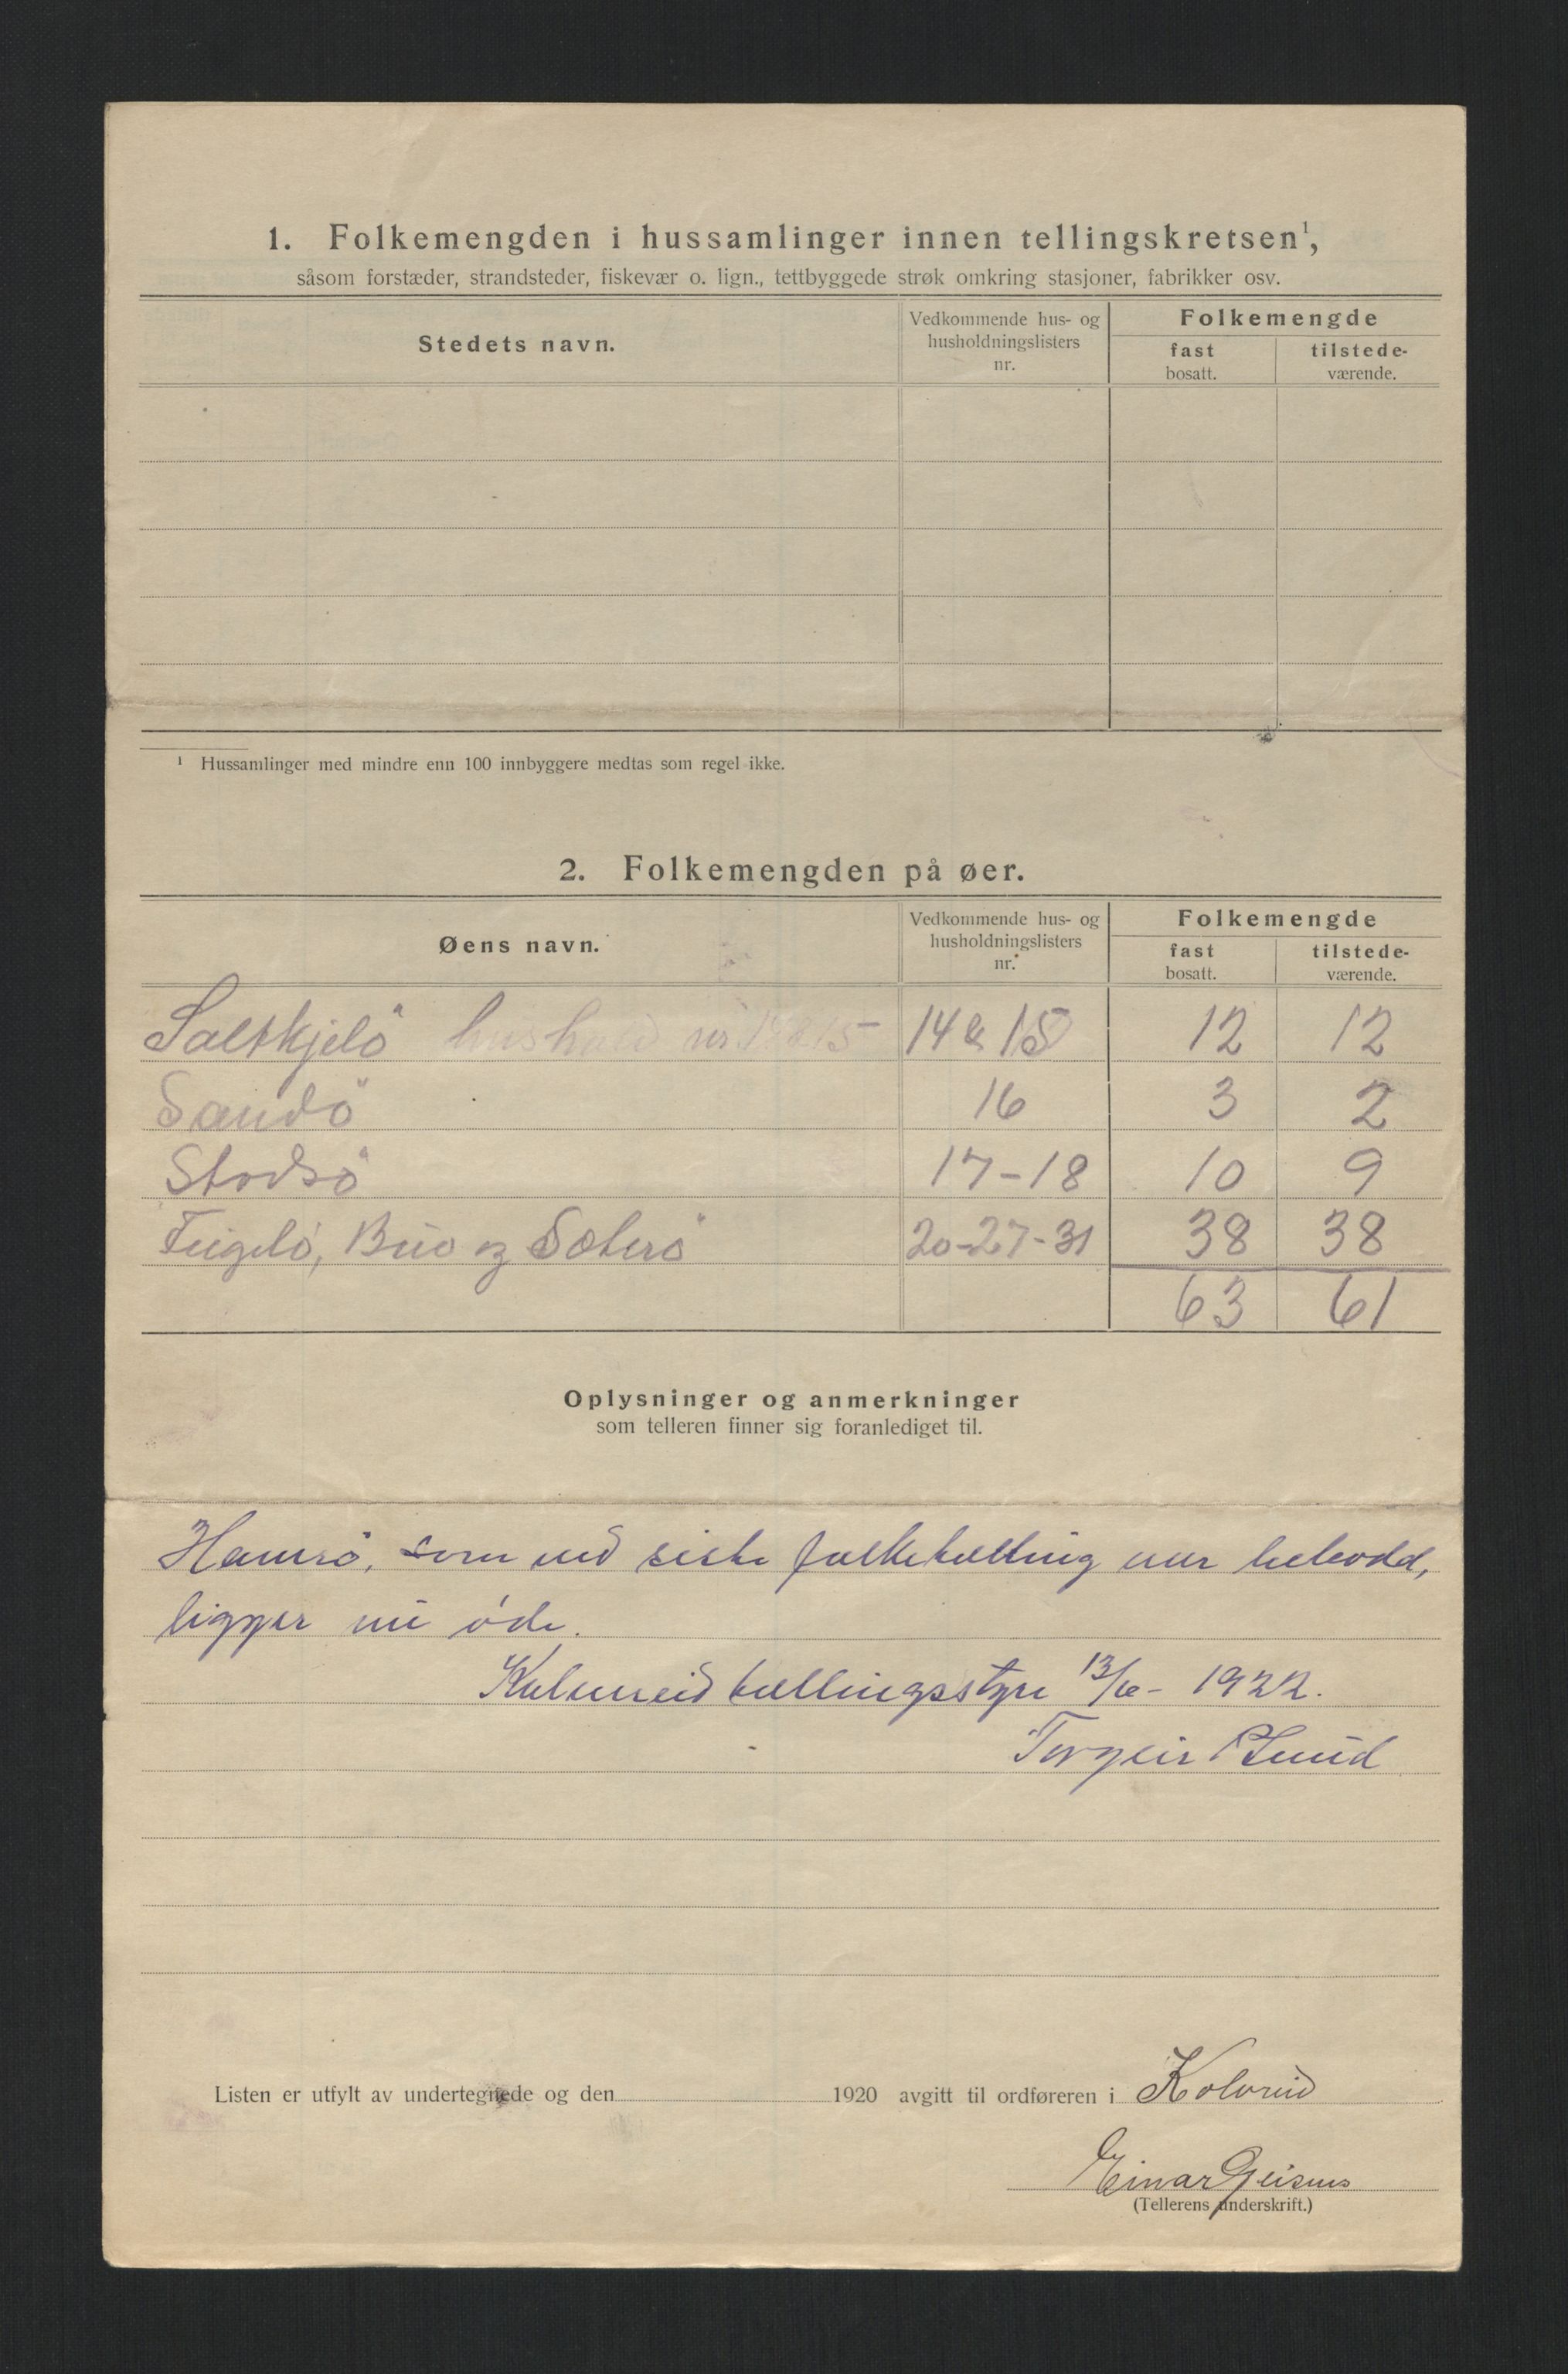 1. Folkemengden i hussamlinger innen tellingskretsen¹,
såsom forstæder, strandsteder, fiskevær o. lign., tettbyggede strøk omkring stasjoner, fabrikker osv.
Stedets navn.
Vedkommende hus- og husholdningslisters nr.
Folkemengde
fast bosatt.
tilstede-værende.
¹ Hussamlinger med mindre enn 100 innbyggere medtas som regel ikke.
2. Folkemengden på øer.
Øens navn.
Vedkommende hus- og husholdningslisters nr.
Folkemengde
fast bosatt.
tilstede-værende.
Saltkjelö hushold nr. 14 & 15 14 & 15 12 12
Sandö 16 3 2
Stodsö 17-18 10 9
Feigelö, Buö og Soterö 20-27-31 38 38
63 61
Oplysninger og anmerkninger
som telleren finner sig foranlediget til.
Hamrö, som ved siste folketelling var bebodd,
ligger nu öde.
Kolvereid tellingsstyre 13/6- 1922.
Torgeir Lund
Listen er utfylt av undertegnede og den 1920 avgitt til ordføreren i Kolvreid
Einar Geisnes
(Tellerens underskrift.)